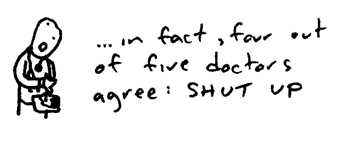 ... in fact, four out
of five doctors
agree: SHUT UP